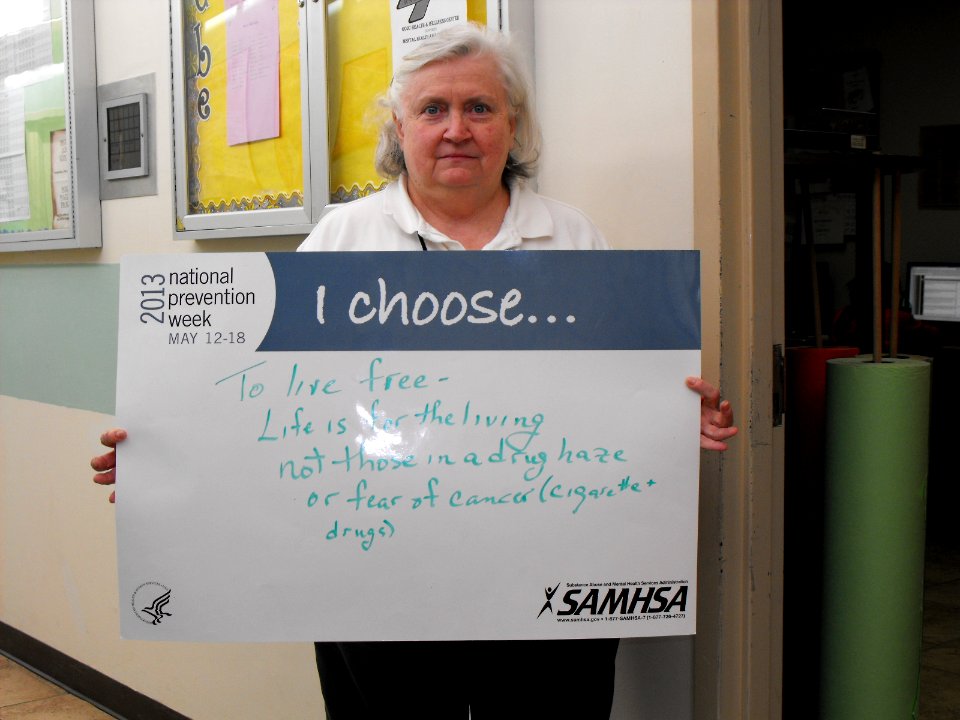 2013
national
prevention
week
MAY 12-18
I choose...
To live free-
Life is for the living
not those in a drug haze
or fear of cancer (cigarette +
drugs)
Substance Abuse and Mental Health Services Administration
SAMHSA
www.samhsa.gov • 1-877-SAMHSA-7 (1-877-726-4727)